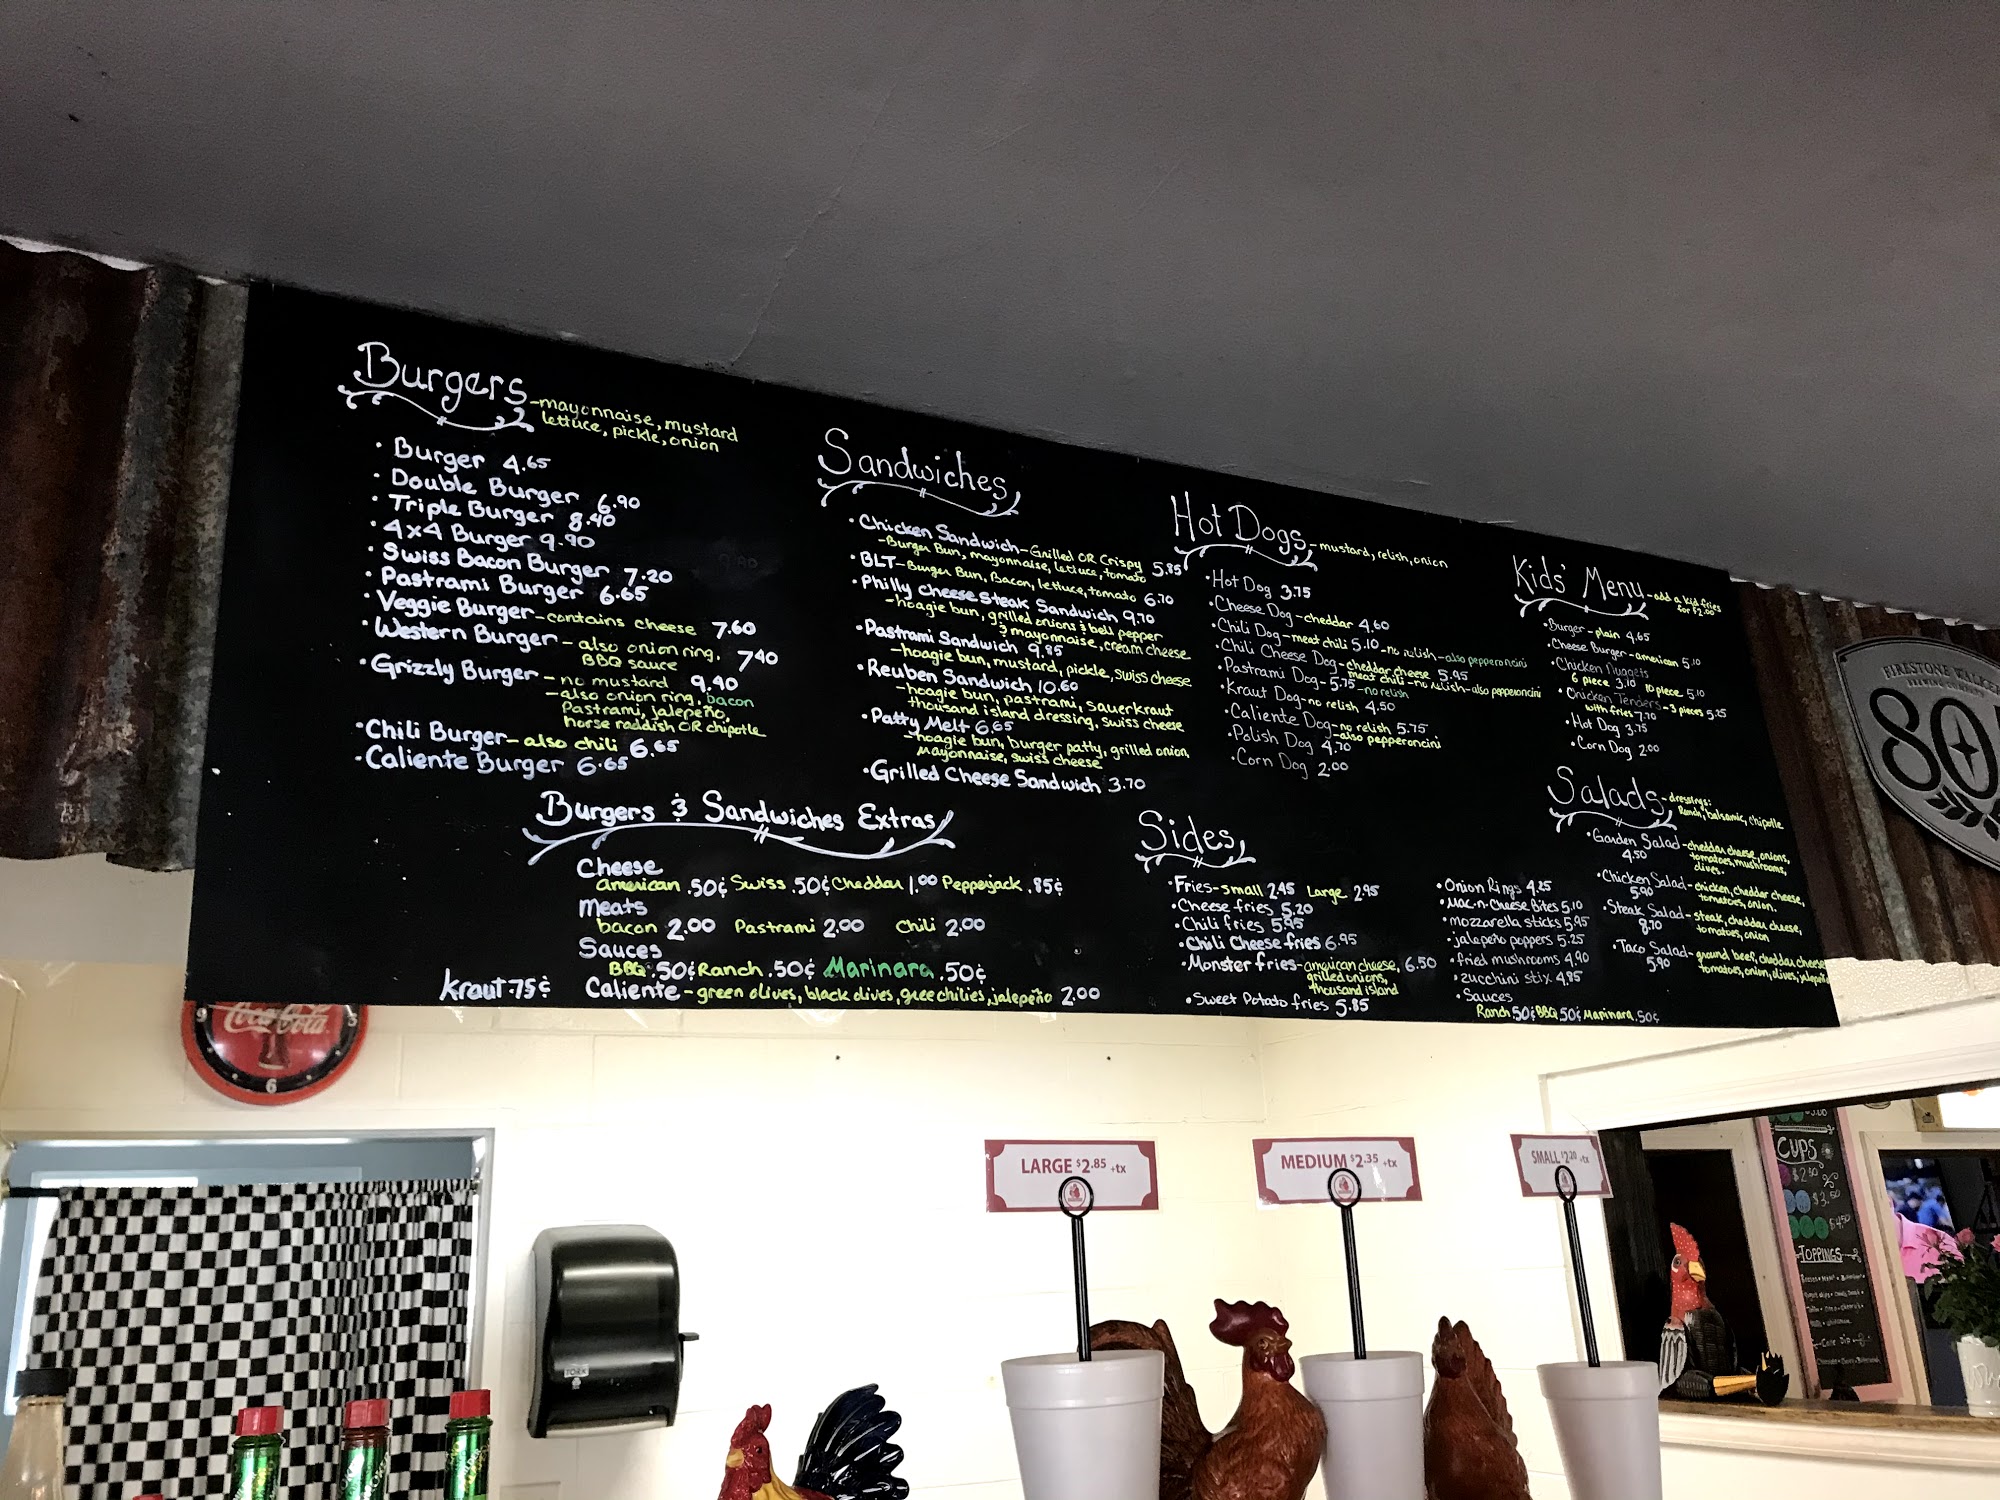 Burgers - mayonnaise, mustard
lettuce, pickle, onion
· Burger 4.65
· Double Burger 6.90
· Triple Burger 8.40
· 4x4 Burger 9.90
· Swiss Bacon Burger 7.20
· Pastrami Burger 6.65
· Veggie Burger - contains cheese 7.60
· Western Burger - also onion ring, 7.40
BBQ sauce
· Grizzly Burger - no mustard 9.40
- also onion ring, bacon
Pastrami, jalepeño,
horse raddish OR chipotle
· Chili Burger - also chili 6.65
· Caliente Burger 6.65
Sandwiches
· Chicken Sandwich - Grilled OR Crispy 5.85
- Burger Bun, mayonnaise, lettuce, tomato
· BLT - Burger Bun, Bacon, lettuce, tomato 6.70
· Philly cheese steak Sandwich 9.70
- hoagie bun, grilled onions & bell pepper
& mayonnaise, cream cheese
· Pastrami Sandwich 9.85
- hoagie bun, mustard, pickle, swiss cheese
· Reuben Sandwich 10.60
- hoagie bun, pastrami, sauerkraut
thousand island dressing, swiss cheese
· Patty Melt 6.65
- hoagie bun, burger patty, grilled onion,
mayonnaise, swiss cheese
· Grilled Cheese Sandwich 3.70
Hot Dogs - mustard, relish, onion
· Hot Dog 3.75
· Cheese Dog - cheddar 4.60
· Chili Dog - meat chili 5.10 - no relish - also pepperoncini
· Chili Cheese Dog - cheddar cheese 5.95
meat chili - no relish - also pepperoncini
· Pastrami Dog - 5.75 - no relish
· Kraut Dog - no relish 4.50
· Caliente Dog - no relish 5.75
- also pepperoncini
· Polish Dog 4.70
· Corn Dog 2.00
Kids' Menu - add a kid fries
for $2.00
· Burger - plain 4.65
· Cheese Burger - american 5.10
· Chicken Nuggets
6 piece 3.10 10 piece 5.10
· Chicken Tenders - 3 pieces 5.25
with fries 7.70
· Hot Dog 3.75
· Corn Dog 2.00
Salads - dressings:
Ranch, balsamic, chipotle
· Garden Salad - cheddar cheese, onions,
4.50 tomatoes, mushrooms,
olives.
· Chicken Salad - chicken, cheddar cheese,
5.90 tomatoes, onion.
· Steak Salad - steak, cheddar cheese,
8.70 tomatoes, onion
· Taco Salad - ground beef, cheddar cheese
5.90 tomatoes, onion, olives, jalepeño
Burgers & Sandwiches Extras
Cheese
american .50¢ Swiss .50¢ Cheddar 1.00 Pepperjack .85¢
Meats
bacon 2.00 Pastrami 2.00 Chili 2.00
Sauces
BBQ .50¢ Ranch .50¢ Marinara .50¢
kraut .75¢ Caliente - green olives, black olives, gree chilies, jalepeño 2.00
Sides
· Fries - small 2.45 Large 2.95
· Cheese fries 5.20
· Chili fries 5.95
· Chili Cheese fries 6.95
· Monster fries - american cheese, 6.50
grilled onions,
thousand island
· Sweet Potato fries 5.85
· Onion Rings 4.25
· Mac-n-Cheese Bites 5.10
· mozzarella sticks 5.95
· jalapeño poppers 5.25
· fried mushrooms 4.90
· zucchini stix 4.85
· Sauces
Ranch .50¢ BBQ .50¢ Marinara .50¢
FIRESTONE WALKER
BREWING COMPANY
805
9 Coca-Cola 3
6
LARGE $2.85 +tx
MEDIUM $2.35 +tx
SMALL $2.20 +tx
TORK
CUPS
$3.50
$4.50
TOPPINGS